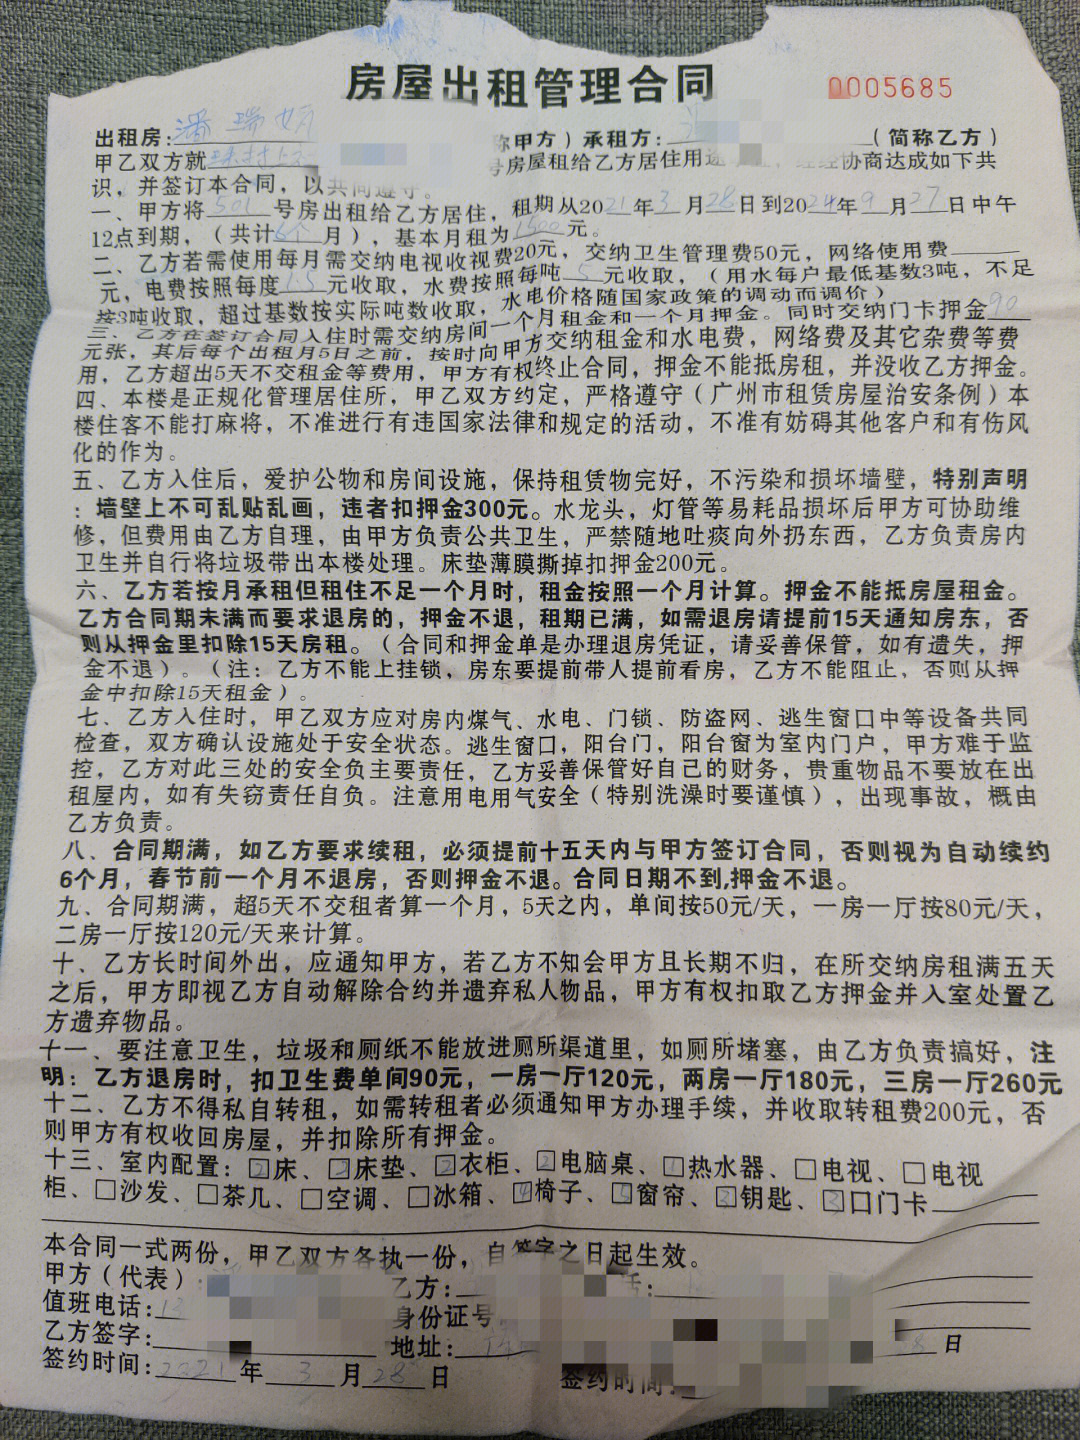 房屋出租管理合同
0005685
出租房：潘瑞 称甲方）承租方： （简称乙方）
甲乙双方就 号房屋租给乙方居住用途 经协商达成如下共
识，并签订本合同，以共同遵守。
一、甲方将501号房出租给乙方居住，租期从2021年3月28日到2024年9月27日中午
12点到期，（共计6个月），基本月租为1500元。
二、乙方若需使用每月需交纳电视收视费20元，交纳卫生管理费50元，网络使用费
元，电费按照每度1.5元收取，水费按照每吨5元收取，（用水每户最低基数3吨，不足
按3吨收取，超过基数按实际吨数收取，水电价格随国家政策的调动而调价）
三、乙方在签订合同入住时需交纳房间一个月租金和一个月押金。同时交纳门卡押金90
元张，其后每个出租月5日之前，按时向甲方交纳租金和水电费，网络费及其它杂费等费
用，乙方超出5天不交租金等费用，甲方有权终止合同，押金不能抵房租，并没收乙方押金。
四、本楼是正规化管理居住所，甲乙双方约定，严格遵守（广州市租赁房屋治安条例）本
楼住客不能打麻将，不准进行有违国家法律和规定的活动，不准有妨碍其他客户和有伤风
化的作为。
五、乙方入住后，爱护公物和房间设施，保持租赁物完好，不污染和损坏墙壁，特别声明
：墙壁上不可乱贴乱画，违者扣押金300元。水龙头，灯管等易耗品损坏后甲方可协助维
修，但费用由乙方自理，由甲方负责公共卫生，严禁随地吐痰向外扔东西，乙方负责房内
卫生并自行将垃圾带出本楼处理。床垫薄膜撕掉扣押金200元。
六、乙方若按月承租但租住不足一个月时，租金按照一个月计算。押金不能抵房屋租金。
乙方合同期未满而要求退房的，押金不退，租期已满，如需退房请提前15天通知房东，否
则从押金里扣除15天房租。（合同和押金单是办理退房凭证，请妥善保管，如有遗失，押
金不退）。（注：乙方不能上挂锁，房东要提前带人提前看房，乙方不能阻止，否则从押
金中扣除15天租金）。
七、乙方入住时，甲乙双方应对房内煤气、水电、门锁、防盗网、逃生窗口中等设备共同
检查，双方确认设施处于安全状态。逃生窗口，阳台门，阳台窗为室内门户，甲方难于监
控，乙方对此三处的安全负主要责任，乙方妥善保管好自己的财务，贵重物品不要放在出
租屋内，如有失窃责任自负。注意用电用气安全（特别洗澡时要谨慎），出现事故，概由
乙方负责。
八、合同期满，如乙方要求续租，必须提前十五天内与甲方签订合同，否则视为自动续约
6个月，春节前一个月不退房，否则押金不退。合同日期不到,押金不退。
九、合同期满，超5天不交租者算一个月，5天之内，单间按50元/天，一房一厅按80元/天，
二房一厅按120元/天来计算。
十、乙方长时间外出，应通知甲方，若乙方不知会甲方且长期不归，在所交纳房租满五天
之后，甲方即视乙方自动解除合约并遗弃私人物品，甲方有权扣取乙方押金并入室处置乙
方遗弃物品。
十一、要注意卫生，垃圾和厕纸不能放进厕所渠道里，如厕所堵塞，由乙方负责搞好，注
明：乙方退房时，扣卫生费单间90元，一房一厅120元，两房一厅180元，三房一厅260元
十二、乙方不得私自转租，如需转租者必须通知甲方办理手续，并收取转租费200元，否
则甲方有权收回房屋，并扣除所有押金。
十三、室内配置：2床、2床垫、2衣柜、2电脑桌、1热水器、□电视、□电视
柜、□沙发、□茶几、□空调、□冰箱、4椅子、5窗帘、3钥匙、3口门卡
本合同一式两份，甲乙双方各执一份，自签字之日起生效。
甲方（代表）： 乙方： 话：
值班电话：13 身份证号
乙方签字： 地址： 28日
签约时间：2021年3月28日 签约时间：